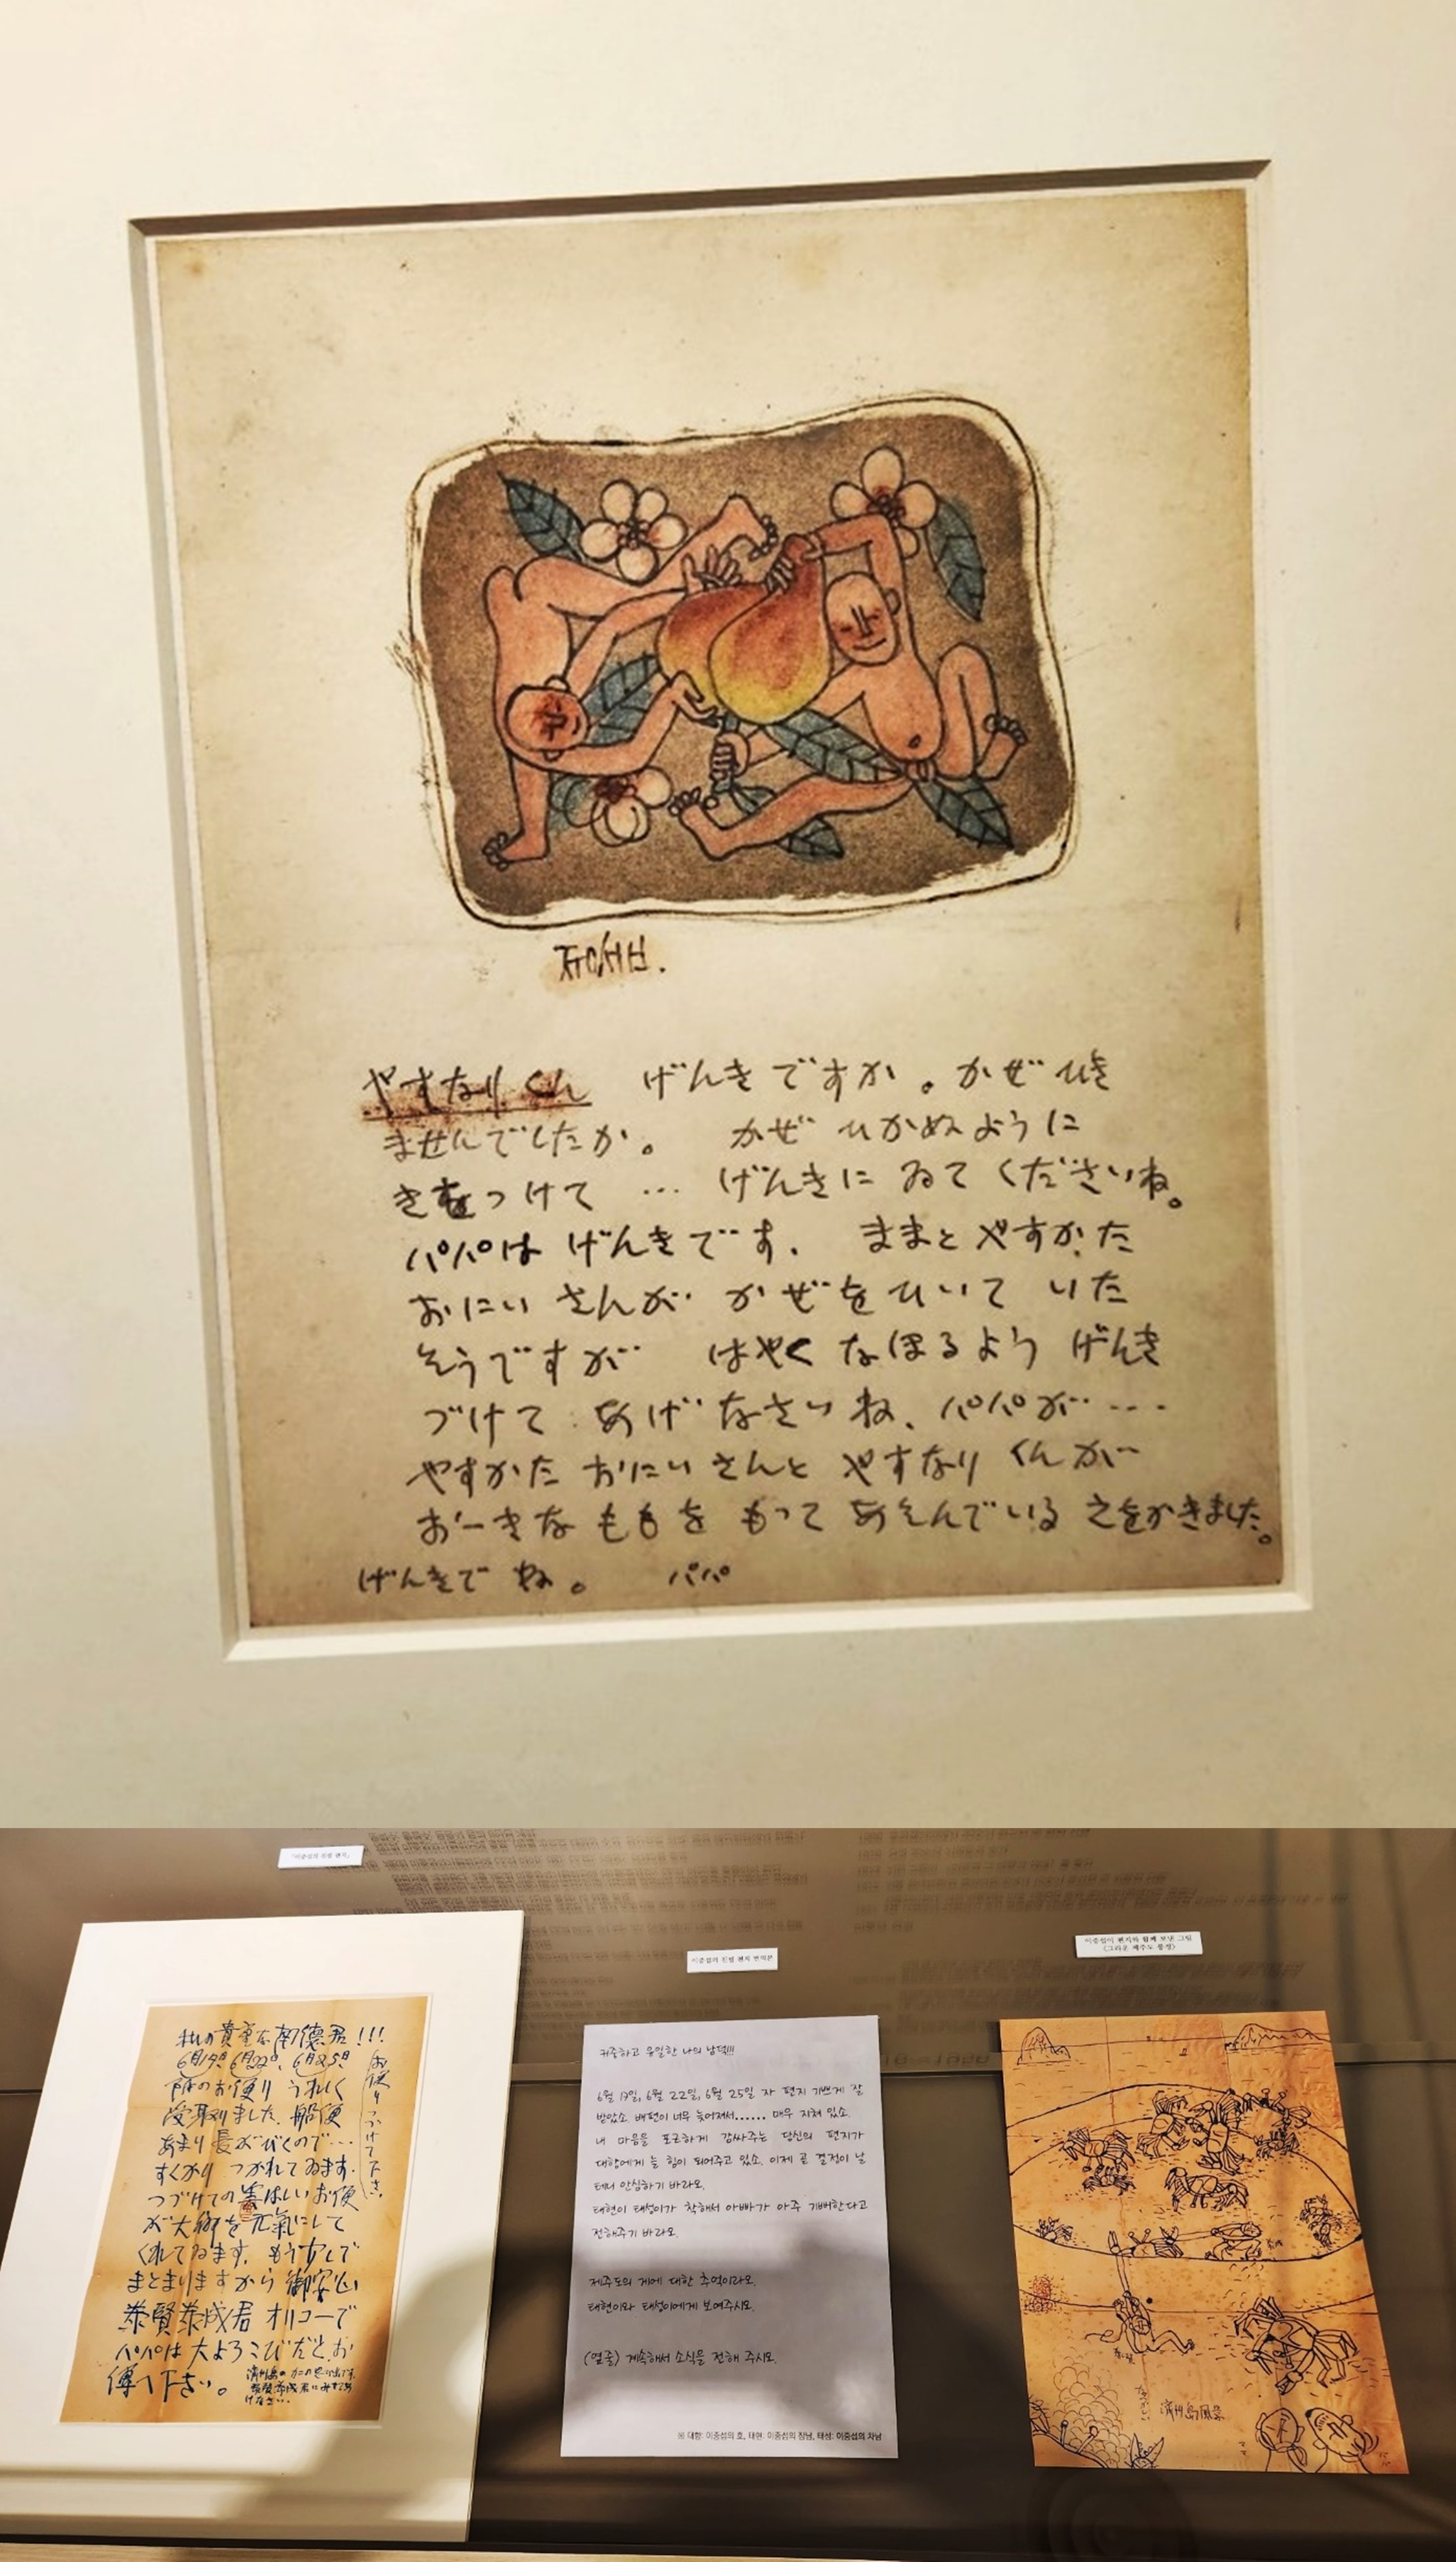 ㅈㅜㅇㅅㅓㅂ.
やすなりくん げんきですか。かぜひき
ませんでしたか。 かぜ ひかぬように
きをつけて … げんきに ゐて くださいね。
パパは げんきです. ままと やすかた
おにい さんが かぜをひいて いた
そうですが はやく なほるよう げんき
づけて あげ なさいね、パパが‥‥
やすかた おにい さんと やすなり くんが
おーきな ももを もって あそんでいる えをかきました。
げんきで ね。 パパ
「이중섭의 친필 편지」
私の貴重な南德君!!!
6月19日, 6月22日, 6月25日
附のお便り うれしく
受取りました. 船便
あまり長がびくので…
すくかり つかれてゐます.
つづけての
お便
が大鄕を元氣にして
くれてゐます. もう少しで
まとまりますから御安心
泰賢泰成君 オリコーで
パパは 大よろこびだと、お
傳へ下さい。
お便りつづけて下さい.
済州島のカニの思ひ出です.
泰賢泰成君にみせてあ
げなさい…
이중섭의 친필 편지 번역본
귀중하고 유일한 나의 남덕!!!
6월 19일, 6월 22일, 6월 25일 자 편지 기쁘게 잘
받았소. 배편이 너무 늦어져서...... 매우 지쳐 있소.
내 마음을 포근하게 감싸주는 당신의 편지가
대향에게 늘 힘이 되어주고 있소. 이제 곧 결정이 날
테니 안심하기 바라오.
태현이 태성이가 착해서 아빠가 아주 기뻐한다고
전해주기 바라오.
제주도의 게에 대한 추억이라오.
태현이와 태성이에게 보여주시오.
(옆줄) 계속해서 소식을 전해 주시오.
※ 대향: 이중섭의 호, 태현: 이중섭의 장남, 태성: 이중섭의 차남
이중섭이 편지와 함께 보낸 그림
〈그리운 제주도 풍경〉
泰成
泰賢
なつかしい
濟州島風景
ママ
パパ